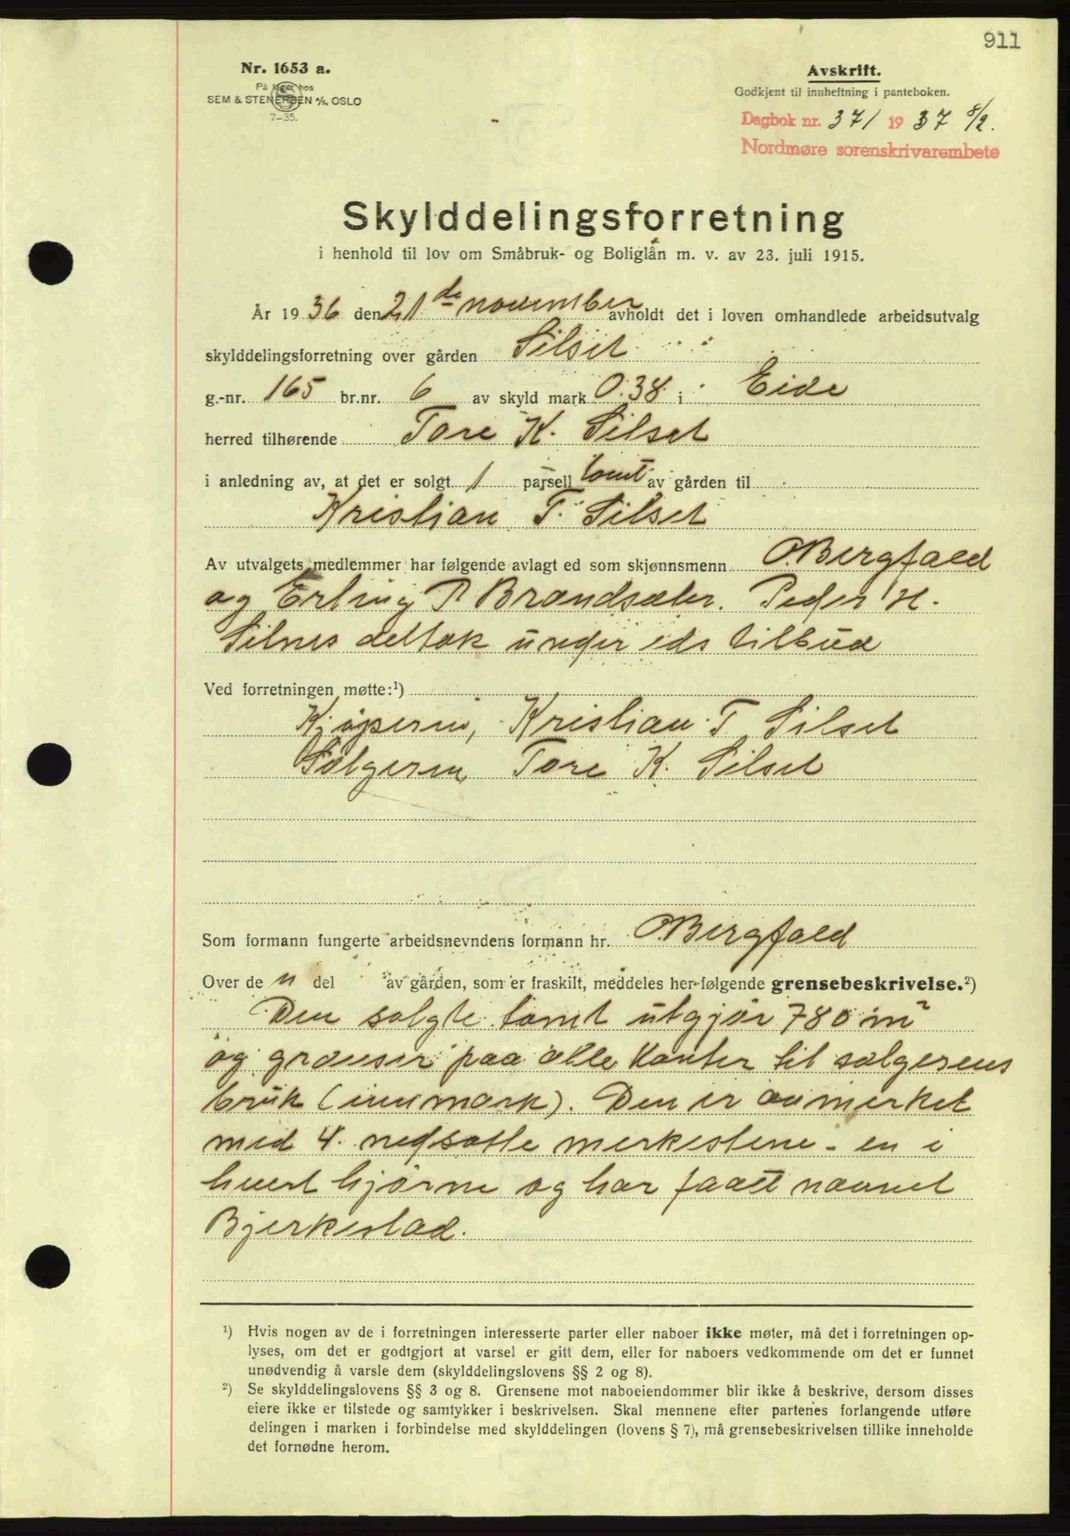 911
Nr. 1653 a.
På lager hos
SEM & STENERSEN A/S, OSLO
7-35.
Avskrift.
Godkjent til innheftning i panteboken.
Dagbok nr. 371 1937 8/2.
Nordmøre sorenskrivarembete
Skylddelingsforretning
i henhold til lov om Småbruk- og Boliglån m. v. av 23. juli 1915.
År 1936 den 21de november avholdt det i loven omhandlede arbeidsutvalg
skylddelingsforretning over gården Silset
g.-nr. 165 br.nr. 6 av skyld mark 0.38 i Eide
herred tilhørende Tore K. Silset
i anledning av, at det er solgt 1 parsell tomt av gården til
Kristian T. Silset
Av utvalgets medlemmer har følgende avlagt ed som skjønnsmenn O. Bergfald
og Erling P Brandsæter. Peder H.
Silnes deltok under eds tilbud
Ved forretningen møtte:¹)
Kjøperen, Kristian T Silset
Selgeren Tore K. Silset
Som formann fungerte arbeidsnevndens formann hr. O. Bergfald
Over den del av gården, som er fraskilt, meddeles her følgende grensebeskrivelse.²)
Den solgte tomt utgjør 780 m²
og grenser paa alle kanter til selgerens
bruk (innmark). Den er avmerket
med 4. nedsatte merkestene - en i
hvert hjørne og har faatt navnet
Bjerkestad.
¹) Hvis nogen av de i forretningen interesserte parter eller naboer ikke møter, må det i forretningen op-
lyses, om det er godtgjort at varsel er gitt dem, eller for naboers vedkommende om det er funnet
unødvendig å varsle dem (skylddelingslovens §§ 2 og 8).
²) Se skylddelingslovens §§ 3 og 8. Grensene mot naboeiendommer blir ikke å beskrive, dersom disses
eiere ikke er tilstede og samtykker i beskrivelsen. Skal mennene efter partenes forlangende utføre
delingen i marken i forbindelse med skylddelingen (lovens § 7), må grensebeskrivelsen tillike inneholde
det fornødne herom.